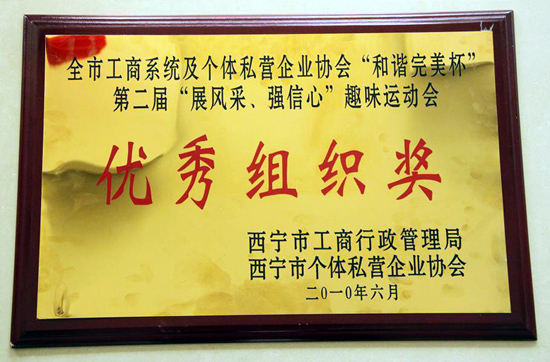 全市工商系统及个体私营企业协会“和谐完美杯”
第二届“展风采、强信心”趣味运动会
优秀组织奖
西宁市工商行政管理局
西宁市个体私营企业协会
二〇一〇年六月